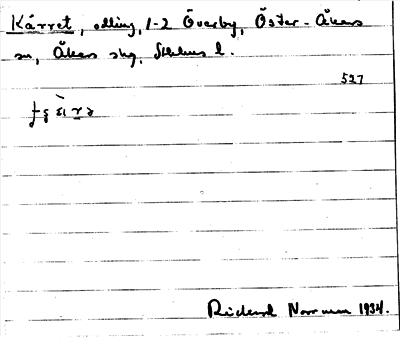 Kärret, odling, 1-2 Överby, Öster-Åkers
sn, Åkers skg, Sthlms l.
527
Rickard Norrman 1934.